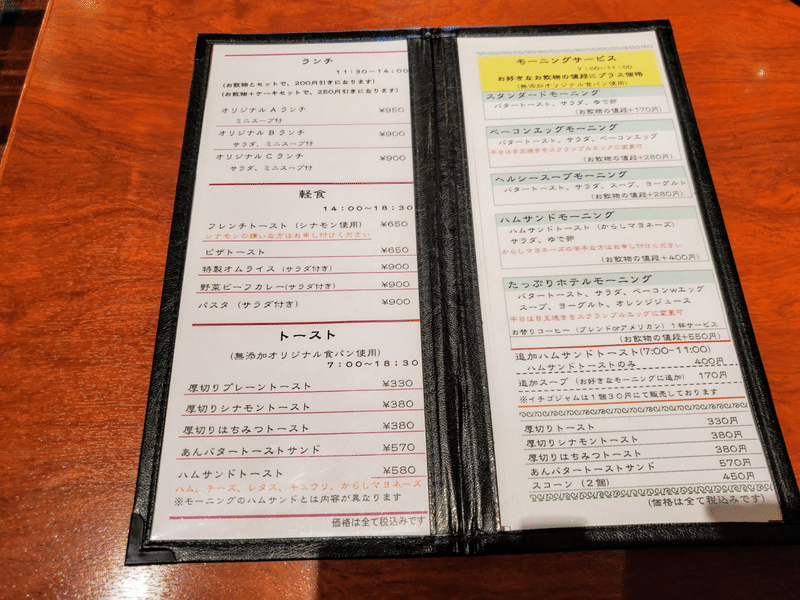 ランチ
11:30～14:00
(お飲物とセットで、200円引きになります)
(お飲物+ケーキセットで、250円引きになります)
オリジナルAランチ ¥950
ミニスープ付
オリジナルBランチ ¥900
サラダ、ミニスープ付
オリジナルCランチ ¥900
サラダ、ミニスープ付
軽食
14:00～18:30
フレンチトースト (シナモン使用) ¥650
シナモンの嫌いな方はお申し付けください
ピザトースト ¥650
特製オムライス (サラダ付き) ¥900
野菜ビーフカレー(サラダ付き) ¥900
パスタ (サラダ付き) ¥900
トースト
(無添加オリジナル食パン使用)
7:00～18:30
厚切りプレーントースト ¥330
厚切りシナモントースト ¥380
厚切りはちみつトースト ¥380
あんバタートーストサンド ¥570
ハムサンドトースト ¥580
ハム、チーズ、レタス、キュウリ、からしマヨネーズ
※モーニングのハムサンドとは内容が異なります
価格は全て税込みです
モーニングサービス
7:00～11:00
お好きなお飲物の値段にプラス価格
(無添加オリジナル食パン使用)
スタンダードモーニング
バタートースト、サラダ、ゆで卵
(お飲物の値段+170円)
ベーコンエッグモーニング
バタートースト、サラダ、ベーコンエッグ
平日は目玉焼きをスクランブルエッグに変更可
(お飲物の値段+280円)
ヘルシースープモーニング
バタートースト、サラダ、スープ、ヨーグルト
(お飲物の値段+280円)
ハムサンドモーニング
ハムサンドトースト (からしマヨネーズ)
サラダ、ゆで卵
からしマヨネーズの苦手な方はお申し付けください
(お飲物の値段+400円)
たっぷりホテルモーニング
バタートースト、サラダ、ベーコンwエッグ
スープ、ヨーグルト、オレンジジュース
平日は目玉焼きをスクランブルエッグに変更可
お替りコーヒー (ブレンドorアメリカン) 1杯サービス
(お飲物の値段+550円)
追加ハムサンドトースト(7:00～11:00)
ハムサンドトーストのみ 400円
追加スープ (お好きなモーニングに追加) 170円
※イチゴジャムは1個30円にて販売しております
厚切りトースト 330円
厚切りシナモントースト 380円
厚切りはちみつトースト 380円
あんバタートーストサンド 570円
スコーン (2個) 450円
(価格は全て税込みです)